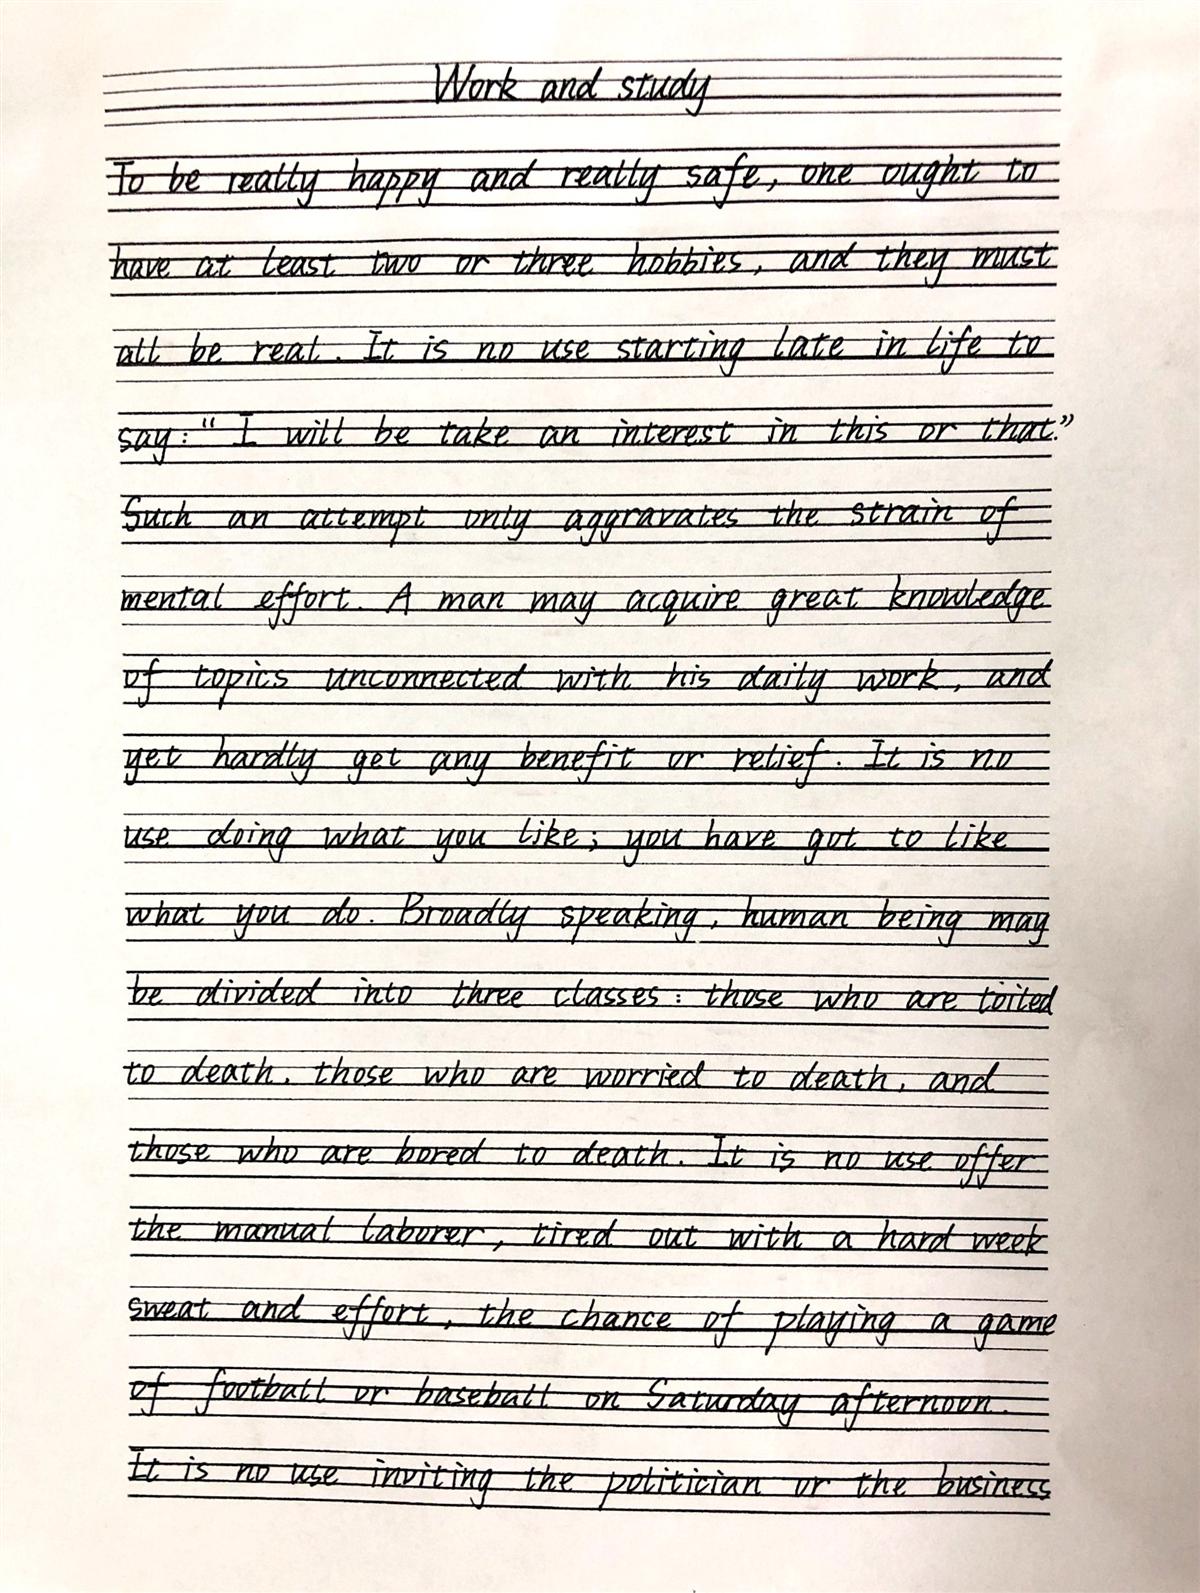 Work and study
To be really happy and really safe, one ought to
have at least two or three hobbies, and they must
all be real. It is no use starting late in life to
say: “I will be take an interest in this or that.”
Such an attempt only aggravates the strain of
mental effort. A man may acquire great knowledge
of topics unconnected with his daily work, and
yet hardly get any benefit or relief. It is no
use doing what you like; you have got to like
what you do. Broadly speaking, human being may
be divided into three classes: those who are toited
to death, those who are worried to death, and
those who are bored to death. It is no use offer
the manual laborer, tired out with a hard week
sweat and effort, the chance of playing a game
of football or baseball on Saturday afternoon.
It is no use inviting the politician or the business